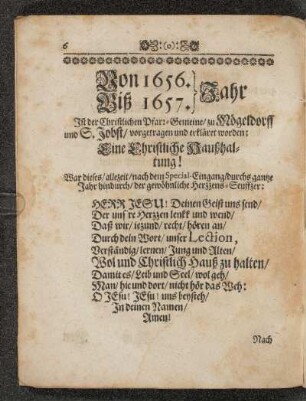 6
Von 1656.
Biß 1657. } Jahr
Ist der Christlichen Pfarr-Gemeine/ zu Mögeldorff
und S. Jobst/ vorgetragen und erkläret worden:
Eine Christliche Haußhal-
tung!
War dieses/ allezeit/ nach dem Special-Eingang/ durchs gantze
Jahr hindurch/ der gewöhnliche Hertzens-Seufftzer:
HERR JESU! Deinen Geist uns send/
Der uns're Hertzen lenkk und wend/
Daß wir/ iezund/ recht/ hören an/
Durch dein Wort/ unser Lection,
Verständig/ lernen/ Jung und Alten/
Wol und Christlich Hauß zu halten/
Damit es/ Leib und Seel/ wol geh/
Man/ hie und dort/ nicht hör das Weh:
O JEsu! JEsu! uns beysteh/
In deinen Namen/
Amen!
Nach